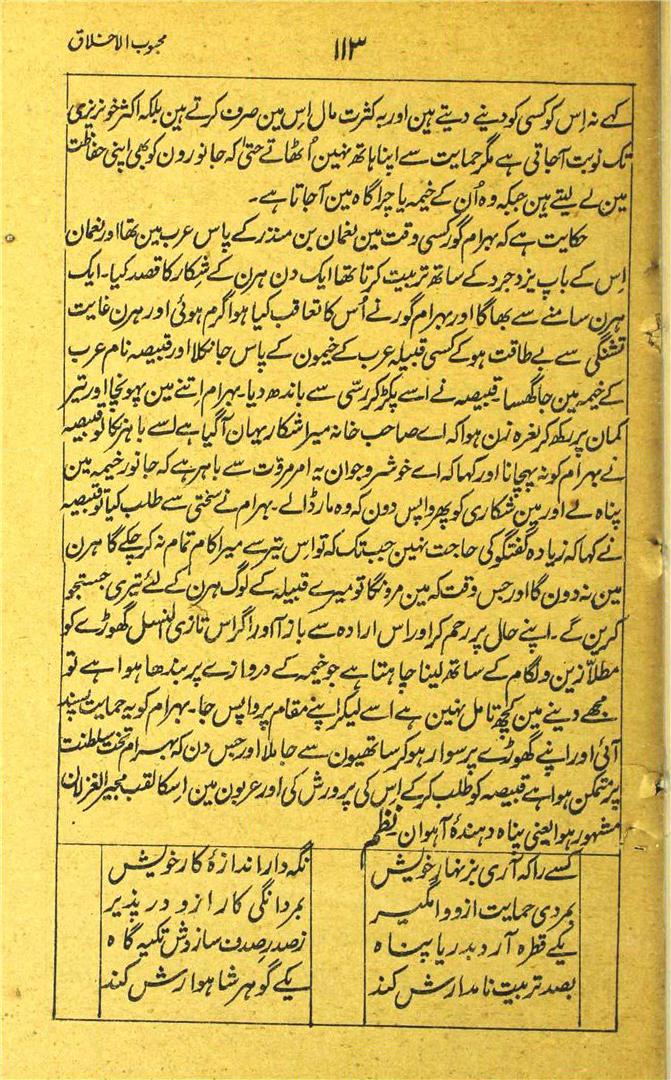 محبوب الاخلاق
۱۱۳
کہے نہ اِس کو کسی کو دینے دیتے ہین اور بہ کثرت مال اِس مین صرف کرتے ہین بلکہ اکثر خونریزی
تک نوبت آجاتی ہے مگر حمایت سے اپنا ہاتھ نہین اُٹھاتے حتیٰ کہ جانورون کو بھی اپنی حفاظت
مین لے لیتے ہین جبکہ وہ اُن کے خیمہ یا چراگاہ مین آجاتا ہے۔
حکایت ہے کہ بہرام گور کسی وقت مین نعمان بن منذر کے پاس عرب مین تھا اور نعمان
اِس کے باپ یزدجرد کے ساتھ تربیت کرتا تھا ایک دن ہرن کے شکار کا قصد کیا۔ ایک
ہرن سامنے سے بھاگا اور بہرام گور نے اُس کا تعاقب کیا ہوا گرم ہوئی اور ہرن غایت
تشنگی سے بے طاقت ہو کے کسی قبیلہ عرب کے خیمون کے پاس جا نکلا اور قبیصہ نام عرب
کے خیمہ مین جا گھسا۔ قبیصہ نے اسے پکڑ کر رسّی سے باندھ دیا۔ بہرام اِتنے مین پہونچا اور تیر
کمان پر رکھ کر نعرہ زن ہوا کہ اے صاحب خانہ میرا شکار یہان آگیا ہے اسے باہر نکال قبیصہ
نے بہرام کو نہ پہچانا اور کہا کہ اے خوشرو جوان یہ امر مروّت سے باہر ہے کہ جانور خیمہ مین
پناہ لے اور مین شکاری کو پھر واپس دون کہ وہ مار ڈالے۔ بہرام نے سختی سے طلب کیا تو قبیصہ
نے کہا کہ زیادہ گفتگو کی حاجت نہین جب تک کہ تو اِس تیر سے میرا کام تمام نہ کرچکے گا ہرن
مین نہ دون گا اور جس وقت کہ مین مرونگا تو میرے قبیلہ کے لوگ ہرن کے لئے تیری جستجو
کرین گے۔ اپنے حال پر رحم کر اور اس ارادہ سے باز آ اور اگر اس تازی النسل گھوڑے کو
مطلاّ زین و لگام کے ساتھ لینا چاہتا ہے جو خیمہ کے دروازے پر بندھا ہوا ہے تو
مجھے دینے مین کچھ تامل نہین ہے اسے لیکر اپنے مقام پر واپس جا۔ بہرام کو یہ حمایت پسند
آئی اور اپنے گھوڑے پر سوار ہو کر ساتھیون سے جا ملا اور جس دن کہ بہرام تخت سلطنت
پر متمکن ہوا ہے قبیصہ کو طلب کر کے اِس کی پرورش کی اور عربون مین اسکا لقب مجیر الغزلان
مشہور ہوا یعنی پناہ دہندۂ آہوان نظم
کسے راکہ آری بزنہار خویش نگہدار اندازۂ کار خویش
بمردی حمایت ازو وامگیر بمردانگی کار ازو در پذیر
یکے قطرہ آرد بدریا پناہ ز صدر صدف سازدش تکیہ گاہ
بصد تربیت نامدارش کند یکے گوہر شاہوارش کند